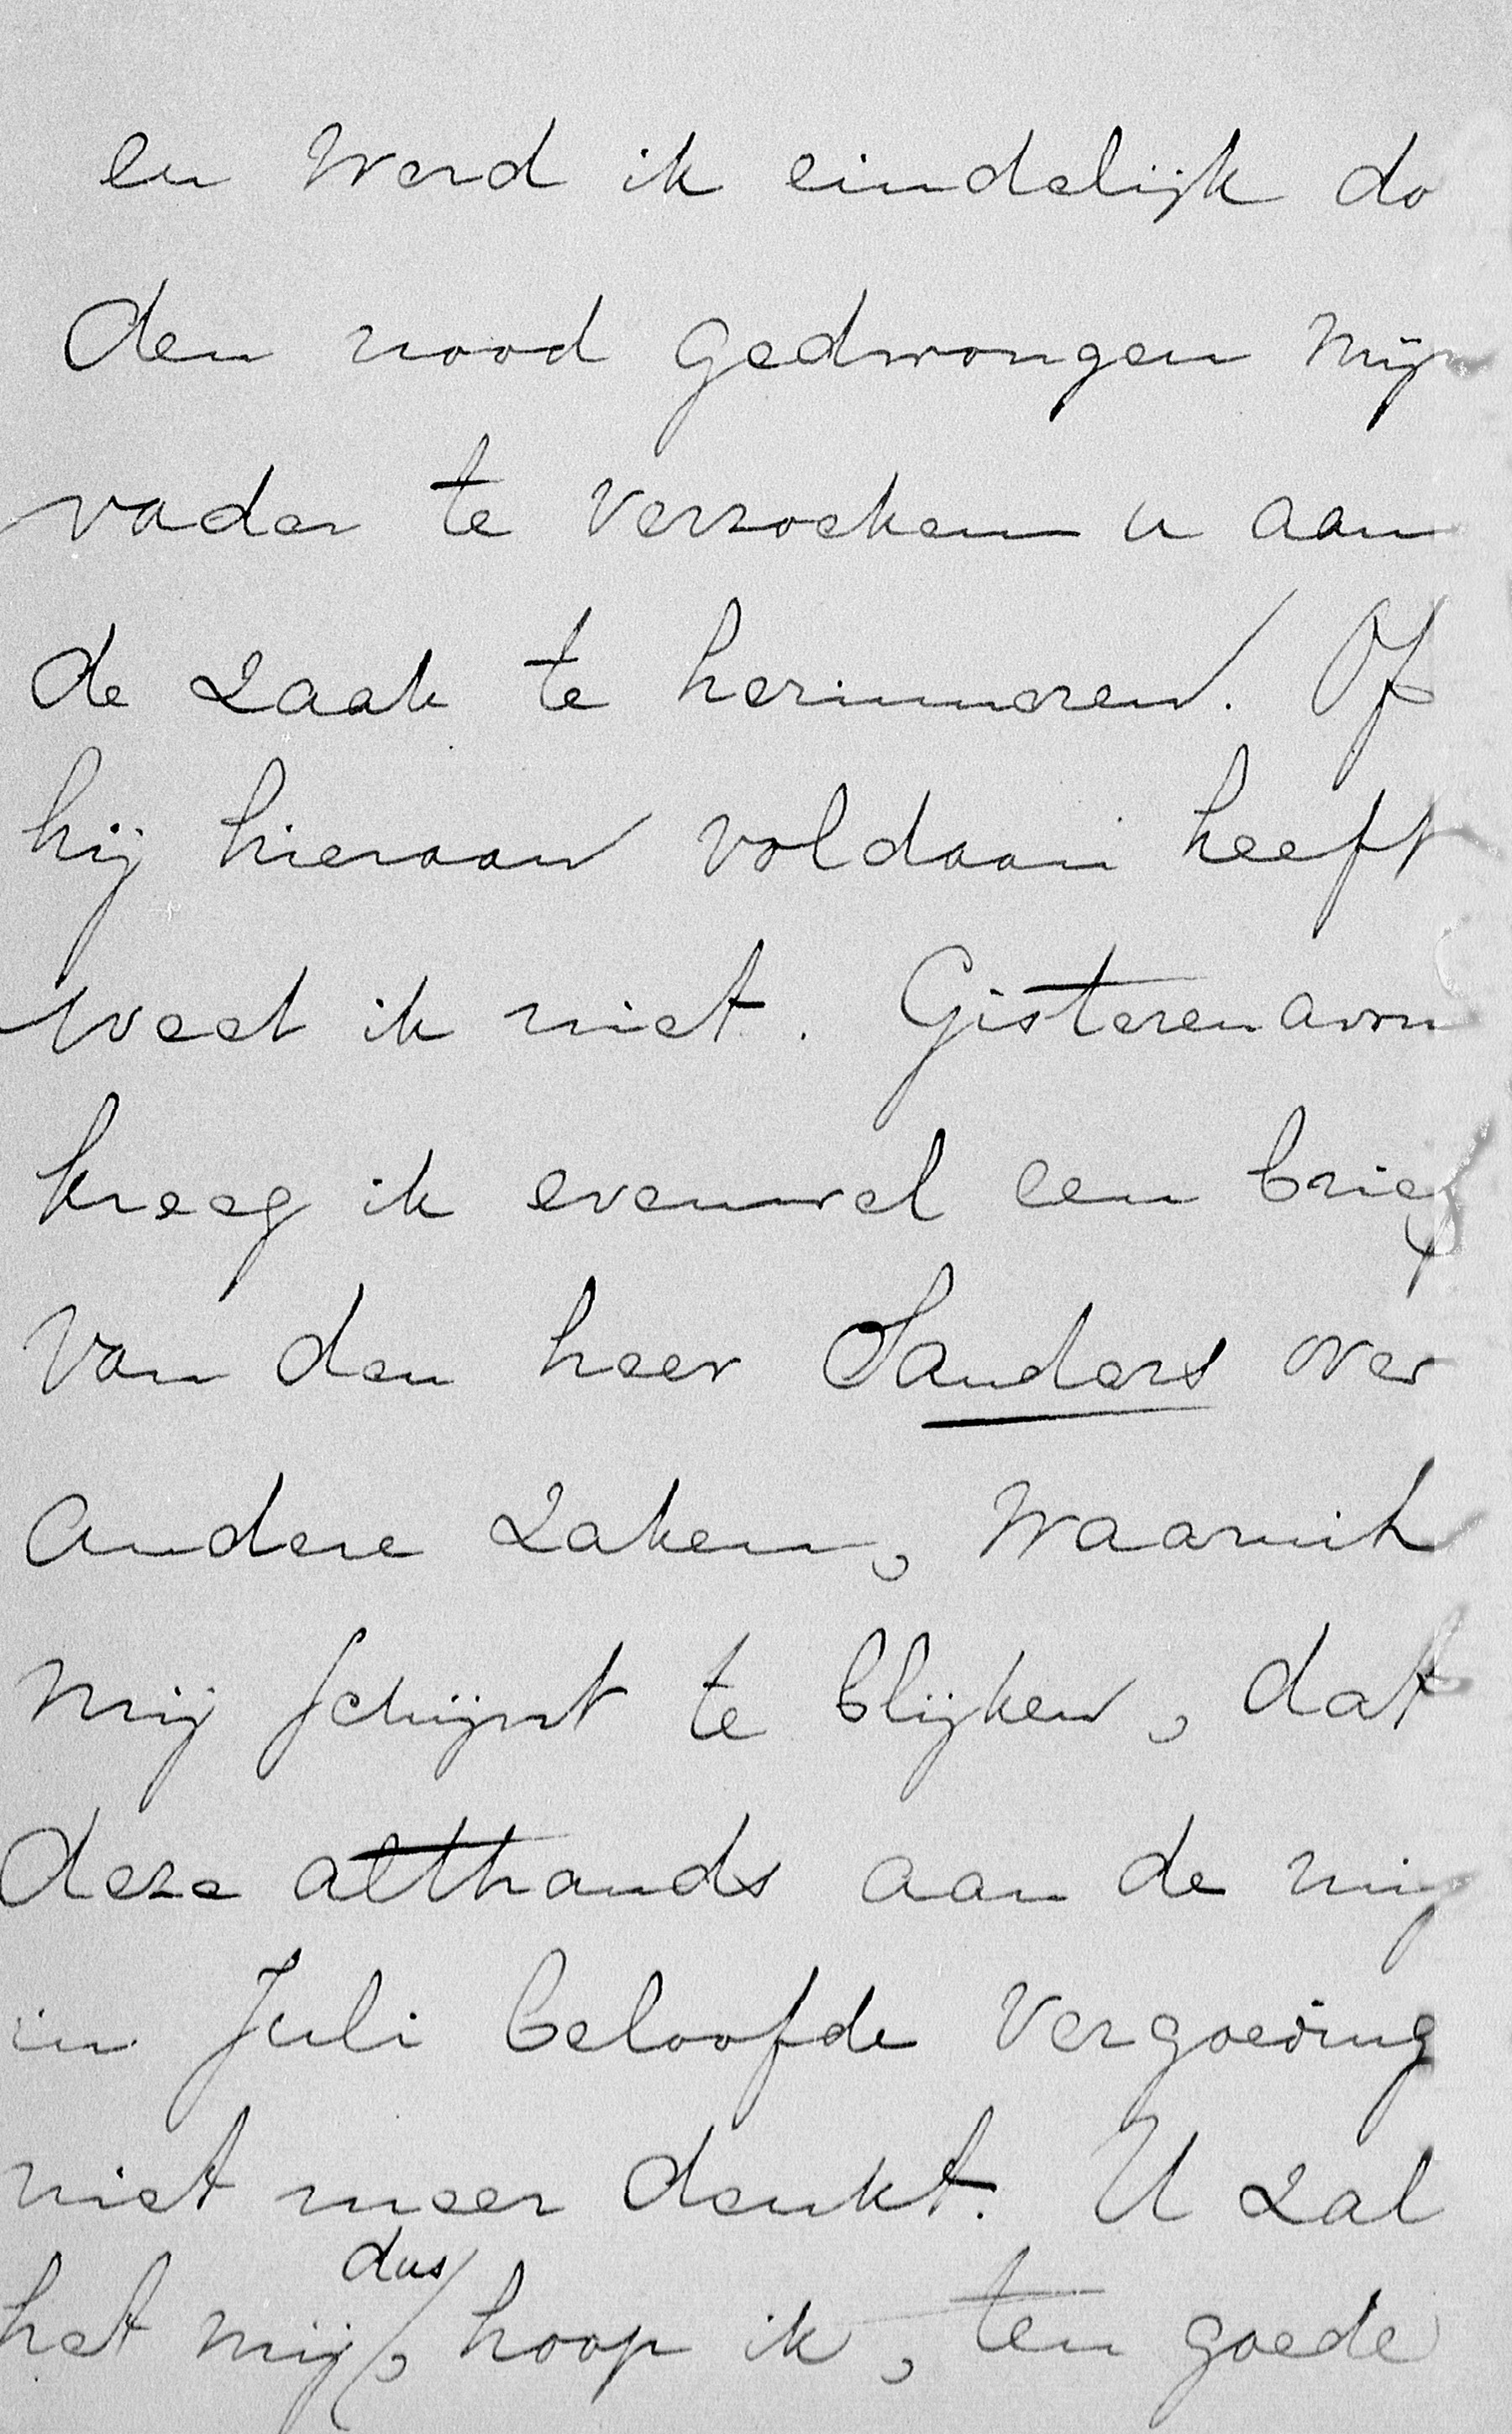 en werd ik eindelijk do
den nood gedwongen mijn
vader te verzoeken u aan
de zaak te herinneren. Of
hij hieraan voldaan heeft
weet ik niet. Gisterenavon
kreeg ik evenwel een brief
van den heer Sanders over
andere zaken, waaruit
mij schijnt te blijken, dat
deze altthands aan de mij
in Juli beloofde vergoeding
niet meer denkt. U zal
het mij dus, hoop ik, ten goede